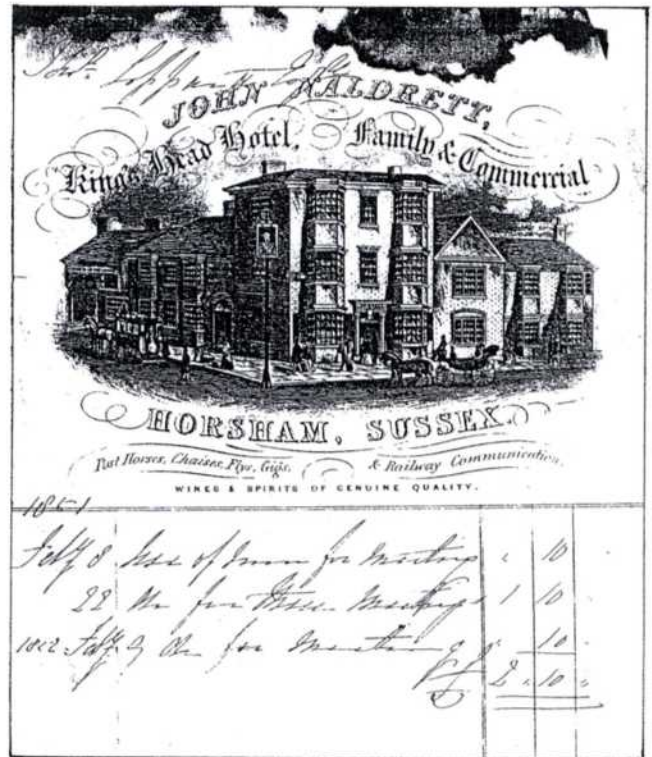 JOHN NALDRETT,
King's Head Hotel, Family & Commercial
HORSHAM, SUSSEX.
Post Horses, Chaises, Flys, Gigs, & Railway Communication.
WINES & SPIRITS OF GENUINE QUALITY.
1851
Feby 8 Use of Room for Meeting " 10
22 Do for Meetings 1 10
1852 Feby 9 Do for Meeting " 10
£ 2 " 10 "